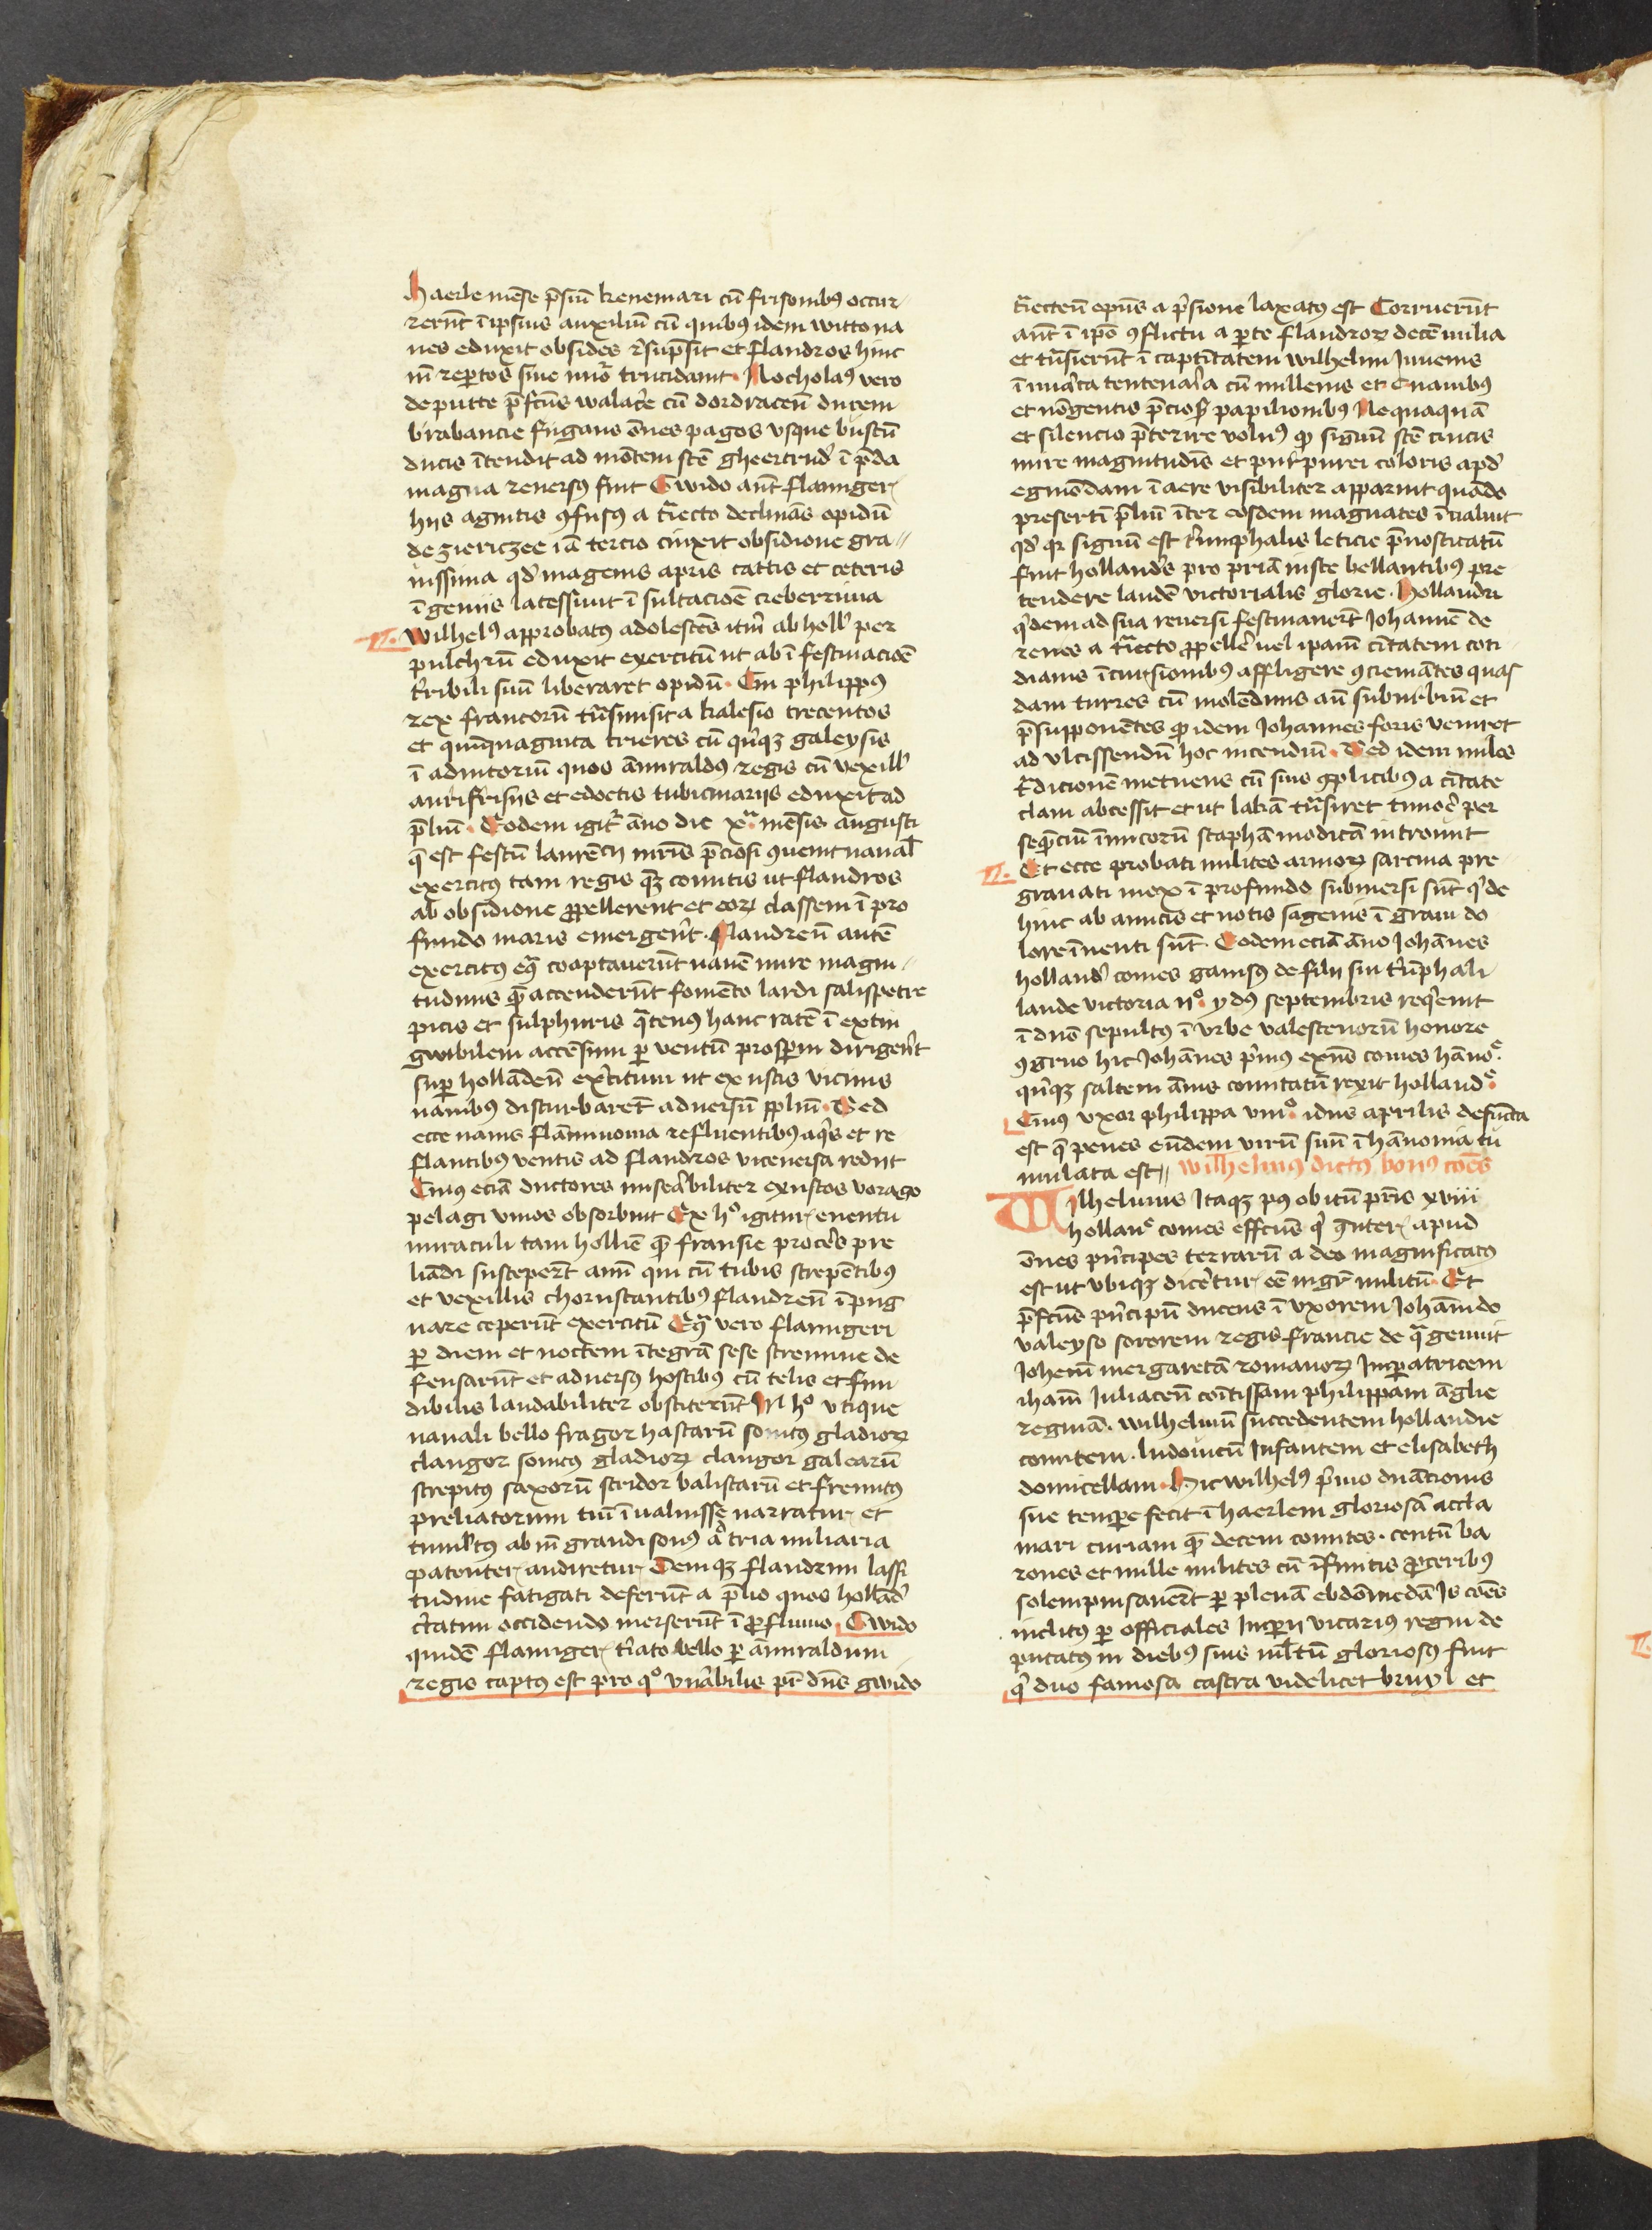 haerlemēse p̄siū kenemari cū frisonibꝰ occur-
rerūt ī ipsius auxiliū cū quibꝰ idem witto na
ues eduxit obsides r̄sup̄sit et flandros hinc
īn reꝑtos siue mīo trucidauit. Nocholaꝰ vero
de putte p̄fcūs walac̄e cū dordraceū ducem
brabancie fugans ōnes pagos vsque buscū
ducis ītendit ad mōtem scē gheertrud̄ ī p̄da
magna reuersꝰ fuit Gwido aūt flamiger
hiis agnitis ꝯfusꝰ a t̄iecto declinās opidū
de zericzee iā tercio cinxit obsidione gra-
uissima qd̄ magenis apris cattis et ceteris
īgeniis lacessiuit īsultacioē creberrima
Wilhelꝰ approbatꝰ adolescēs itīn ab holl̄ per
pulchrū eduxit exercitū ut ab ī festinacioē
t̄ribili suū liberaret opidū. Cui philippꝰ
rex francorū t̄nsmisit a kalesio trecentos
et quīquaginta trieres cū qīqꝫ galeysis
ī adiutoriū quos āmiraldꝰ regis cū vexill̄
aurifrisiis et edoctis tubicinariis eduxit ad
p̄liū. Eodem igit̄ āno die xᵃ mēsis augusti
q̄ est festū laurēcij mr̄is p̄ciosi ꝯuenit naual̄
exercitꝰ tam regis qꝫ comitis ut flandros
ab obsidione ꝓpellerent et eoꝝ classem ī pro
fundo maris emerger̄t. Flandreū autē
exercitꝰ eqᵃ coaptauerūt nauē mire magni-
tudinis quā accenderūt fomēto lardi salispetre
picis et sulphuris q̄tenꝰ hanc ratē ī extin
gwibilem accēsim ꝑ ventū prosꝑm diriger̄t
suꝑ hollādeū ex̄citum ut ex ustis vicinis
nauibꝰ disturbaret̄ aduersū ꝓliū. Sed
ecce nauis flāmiuoma refluentibꝰ aq̄s et re
flantibꝰ ventis ad flandros viceuersa rediit
Cuiꝰ eciā ductores miser̄abiliter exustos vorago
pelagi viuos obsorbuit Ex hᵒ igitur euentu
miraculi tam holliē quā fransie procēs pre
liādi susceper̄t aīm qui cū tubis strepētibꝰ
et vexillis choruscantibꝰ flandreū īpug
nare ceperūt exercitū Eqᵃ vero flamigeri
ꝑ diem et noctem ītegrā sese strennue de
fensarūt et aduersꝰ hostibꝰ cū telis et fun
dibilis laudabiliter obstiterūt In hᵒ vtique
nauali bello fragor hastarū sonitꝰ gladioꝝ
clangor sonitꝰ gladioꝝ clangor galearū
strepitꝰ saxorū stridor balistarū et fremitꝰ
preliatorum tm̄ ī ualuisse narratur et
tumultꝰ ab īn grandisonꝰ ad tria miliaria
patenter audiretur Demqꝫ flandrini lassi
tudine fatigati deferūt a p̄lio quos hollād̄
c̄tatim occidendo merserūt ī ꝓfluuio Gwido
quidē flamiger t̄iato bello ꝑ āmiraldum
regis captꝰ est pro qᵒ vn̄abilis pr̄ dn̄s gwido
t̄iecteū epūs a p̄sione laxatꝰ est Corruerūt
aūt ī ip̄o ꝯflictu a ꝑte flandroꝝ decē milia
et t̄nsierūt ī capti̅tatem wilhelmi iuuenis
ī mīta tentena̅a cū millenis et C nauibꝰ
et nōgentis p̄ciosꝭ papilionibꝰ Nequaquā
et silencio p̄terire volūꝰ ꝙ signū scē crucis
mire magnitudīs et purpurei coloris apd̄
egmōdam ī aere visibiliter apparuit quādo
presertī p̄liū īter eosdem magnates īcaluit
qd̄ qr signū est t̄umphalis leticie p̄nosticatū
fuit holland̄s pro priā iuste bellantibꝰ pre
tendere laudē victorialis glorie. Hollandri
q̄dem ad sua reuersi festinauer̄t Johannē de
renes a t̄iecto ꝓpelle̅ uel ipam̄ ci̅tatem coti
dianis īcursionibꝰ affligere ꝯcremātes quas
dam turres cū molēdinis aū suburbiū et
p̄supponētes ꝙ idem Johannes foris veniret
ad vlcissendū hoc incendiū. Sed idem miles
t̄dicionē metuens cū suis ꝯplicibꝰ a ci̅tate
clam abcessit et ut lakā t̄nsiret timoē per
seq̄nciū īnicorū scaphā modicā introiuit
Et ecce probati milites armoꝝ sarcina pre
grauati mox ī profundo submersi sūt q̄ de
hinc ab amicis et notis sagenis ī gram do
lore īuenti sūt. Eodem eciā āno Johānes
holland̄ comes gauisꝰ de filij sui t̄ūphali
laude victoria ijᵒ. ydꝰ septembris req̄euit
ī dn̄o sepultꝰ ī vrbe valescenorū honore
ꝯgruo hic Johānes p̄mꝰ exn̄s comes hānoᵉ.
quīqꝫ saltem ānis comitatū rexit hollandᵉ.
Cuiꝰ vxor philippa viijᵒ. idus aprilis defūcta
est q̄ penes eūdem virū suū ī hānonia tu
mulata est. wilhelmꝰ dictꝰ bonꝰ coēs
Wilhelmus Itaqꝫ pꝰ obitū pr̄is xviij
hollanᵉ comes effcūs q̄ gnter apud
ōnes p̄ncipes terrarū a deo magnificatꝰ
est ut vbiqꝫ dicetur eē mgr̄ militū. Et
p̄fcūs p̄ncipū ducens ī vxorem Johān̄ do
valeyso sororem regis francie de qᵃ genuit
Johem̄ mergaretā romanoꝝ Imꝑatricem
iham̄ Iuliaceū cōtissam philippam āglie
reginā. wilhelmū succedentem hollandie
comitem. ludouicū Infantem et elisabeth
domicellam. Hic wilhelꝰ p̄mo dn̄acionis
sue temꝑe fecit ī haerlem gloriosā accla
mari curiam quā decem comites. centū ba
rones et mille milites cū īfinitis ꝓceribꝰ
solempnisauer̄t ꝑ plenā ebdōmedā Is coēs
inclitus ꝑ officiales Imꝑij vicarius regni de
putatus in diebꝰ suis mltū gloriosꝰ fuit
q̄ duo famosa castra videlicet bruyl et